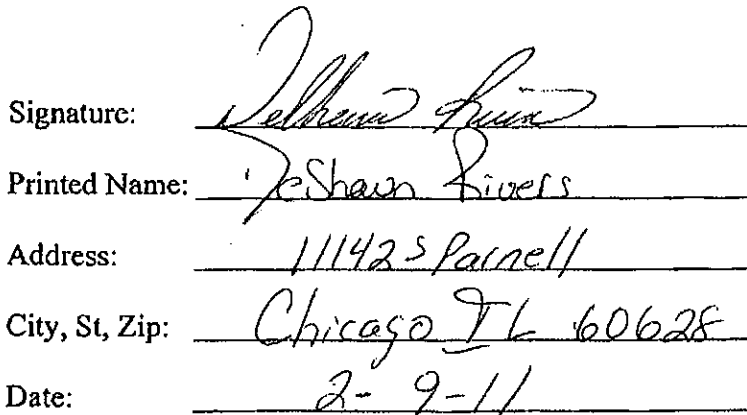 Signature: DeShawn Rivers
Printed Name: DeShawn Rivers
Address: 11142 S Parnell
City, St, Zip: Chicago IL 60628
Date: 2-9-11